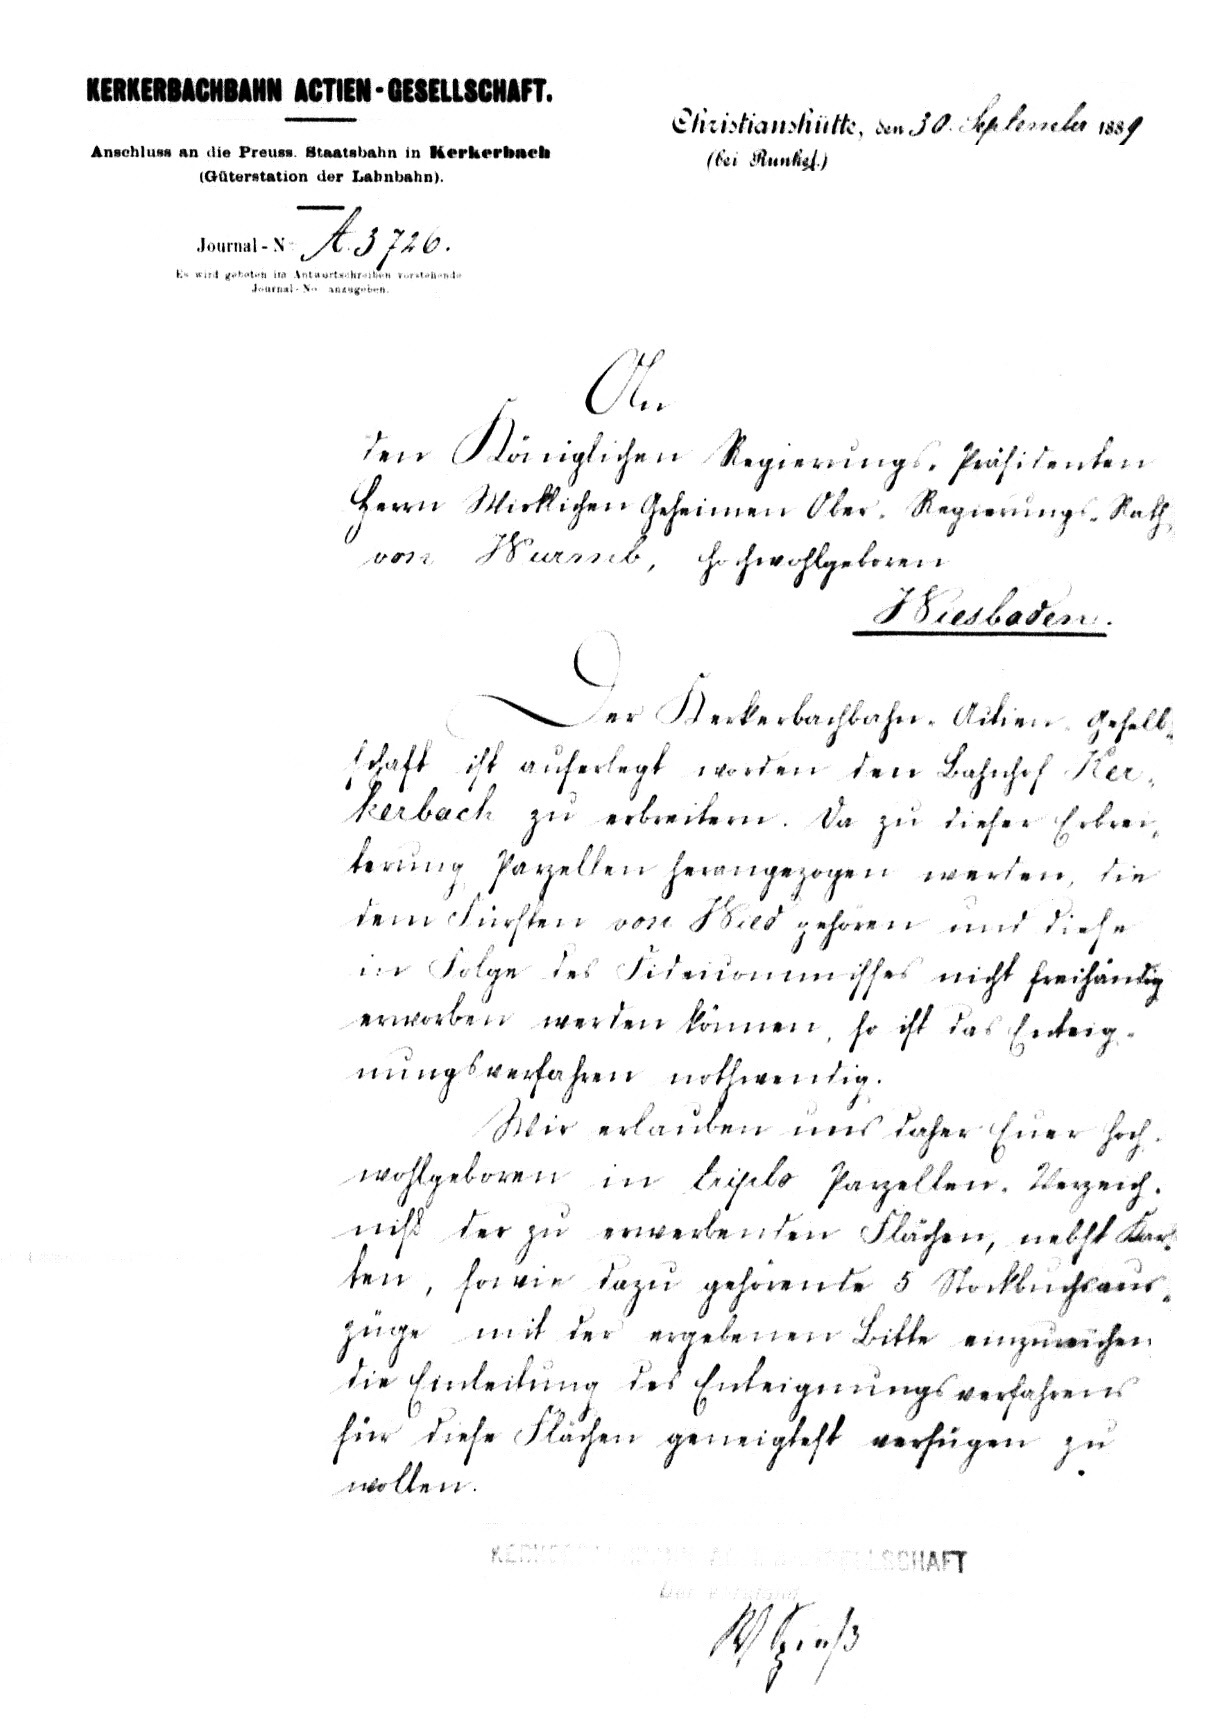 KERKERBACHBAHN ACTIEN-GESELLSCHAFT.
Anschluss an die Preuss. Staatsbahn in Kerkerbach
(Güterstation der Lahnbahn).
Journal-No A. 3726.
Es wird gebeten im Antwortschreiben vorstehende
Journal-No anzugeben.
Christianshütte, den 30. September 1889
(bei Runkel.)
An
den Königlichen Regierungs-Präsidenten
Herrn Wirklichen Geheimen Ober-Regierungs-Rath
von Wurmb, Hochwohlgeboren
Wiesbaden.
Der Kerkerbachbahn-Actien-Gesell-
schaft ist auferlegt worden den Bahnhof Ker-
kerbach zu erbreitern. Da zu dieser Erbrei-
terung Parzellen herangezogen werden, die
dem Fürsten von Wied gehören und diese
in Folge des Fideicommisses nicht freihändig
erworben werden können, so ist das Enteig-
nungsverfahren nothwendig.
Wir erlauben uns daher Euer Hoch-
wohlgeboren in triplo Parzellen-Verzeich-
niß der zu erwerbenden Flächen, nebst Kar-
ten, sowie dazu gehörende 5 Stockbuchsaus-
züge mit der ergebenen Bitte einzureichen
die Einleitung des Enteignungsverfahrens
für diese Flächen geneigtest verfügen zu
wollen.
KERKERBACHBAHN ACTIEN-GESELLSCHAFT
Der Vorstand